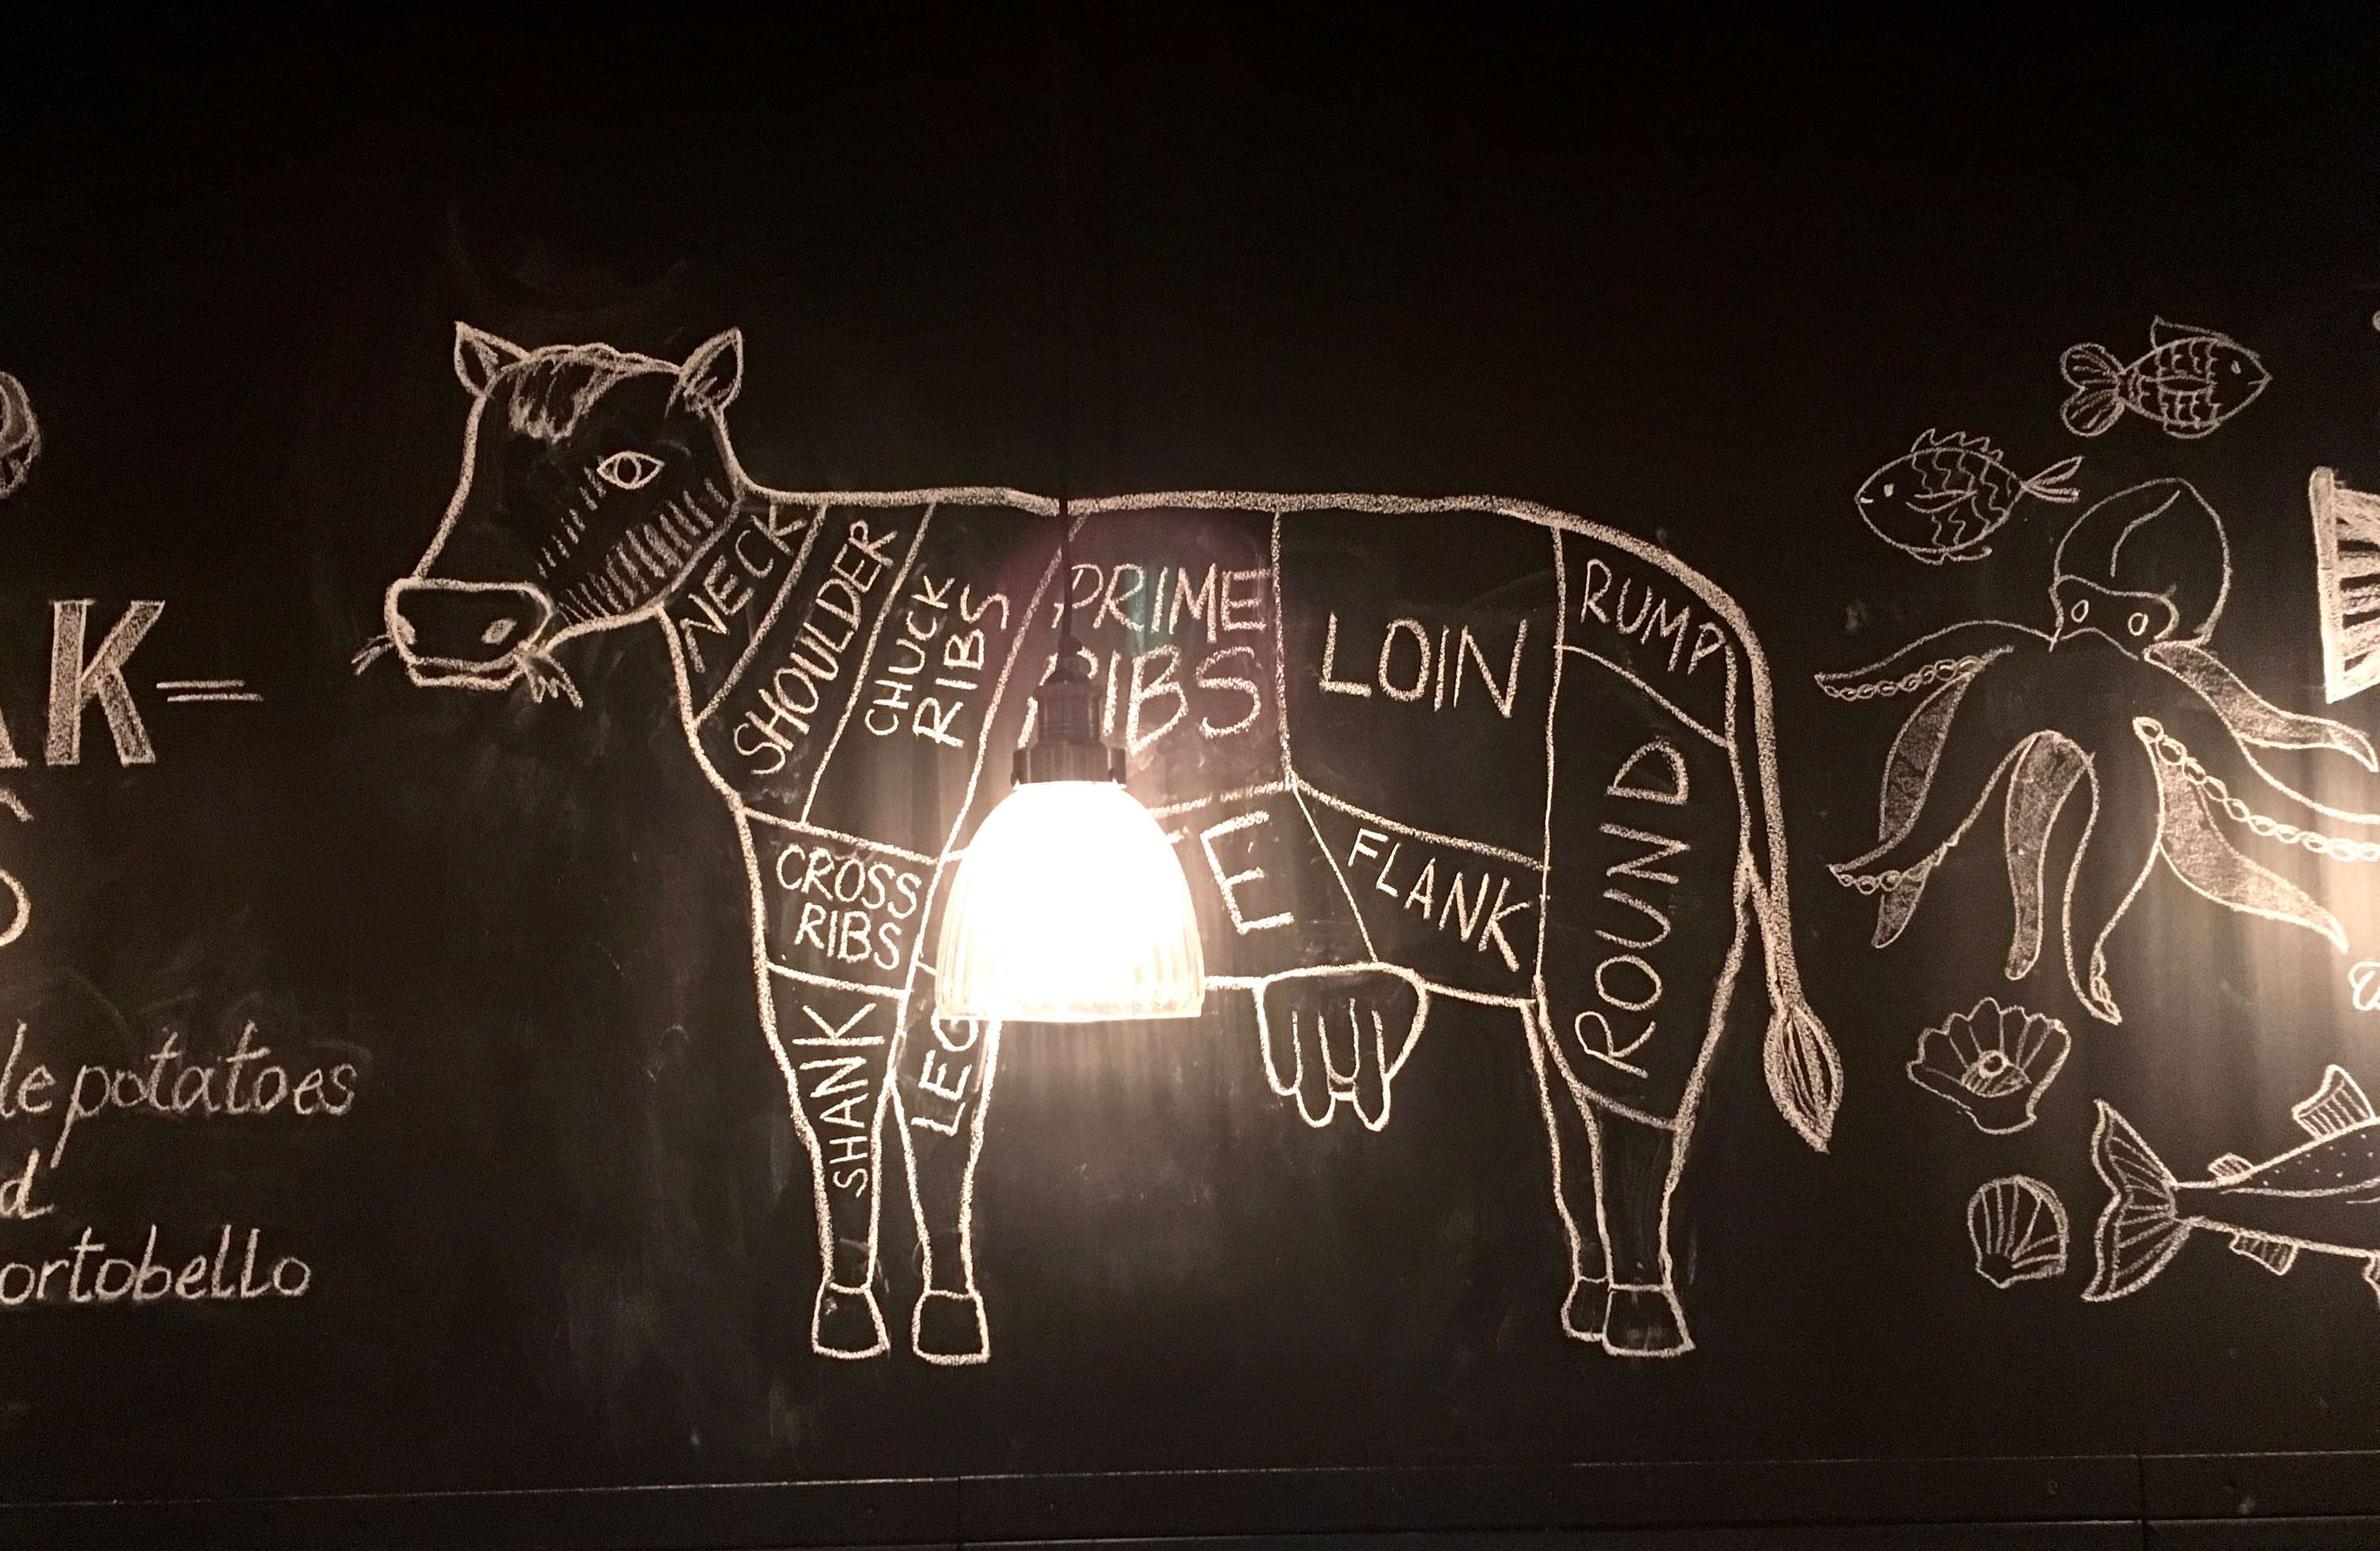 K
le potatoes
d
ortobello
NECK
SHOULDER
CHUCK
RIBS
PRIME
RIBS
LOIN
RUMP
CROSS
RIBS
FLANK
ROUND
SHANK
LEG